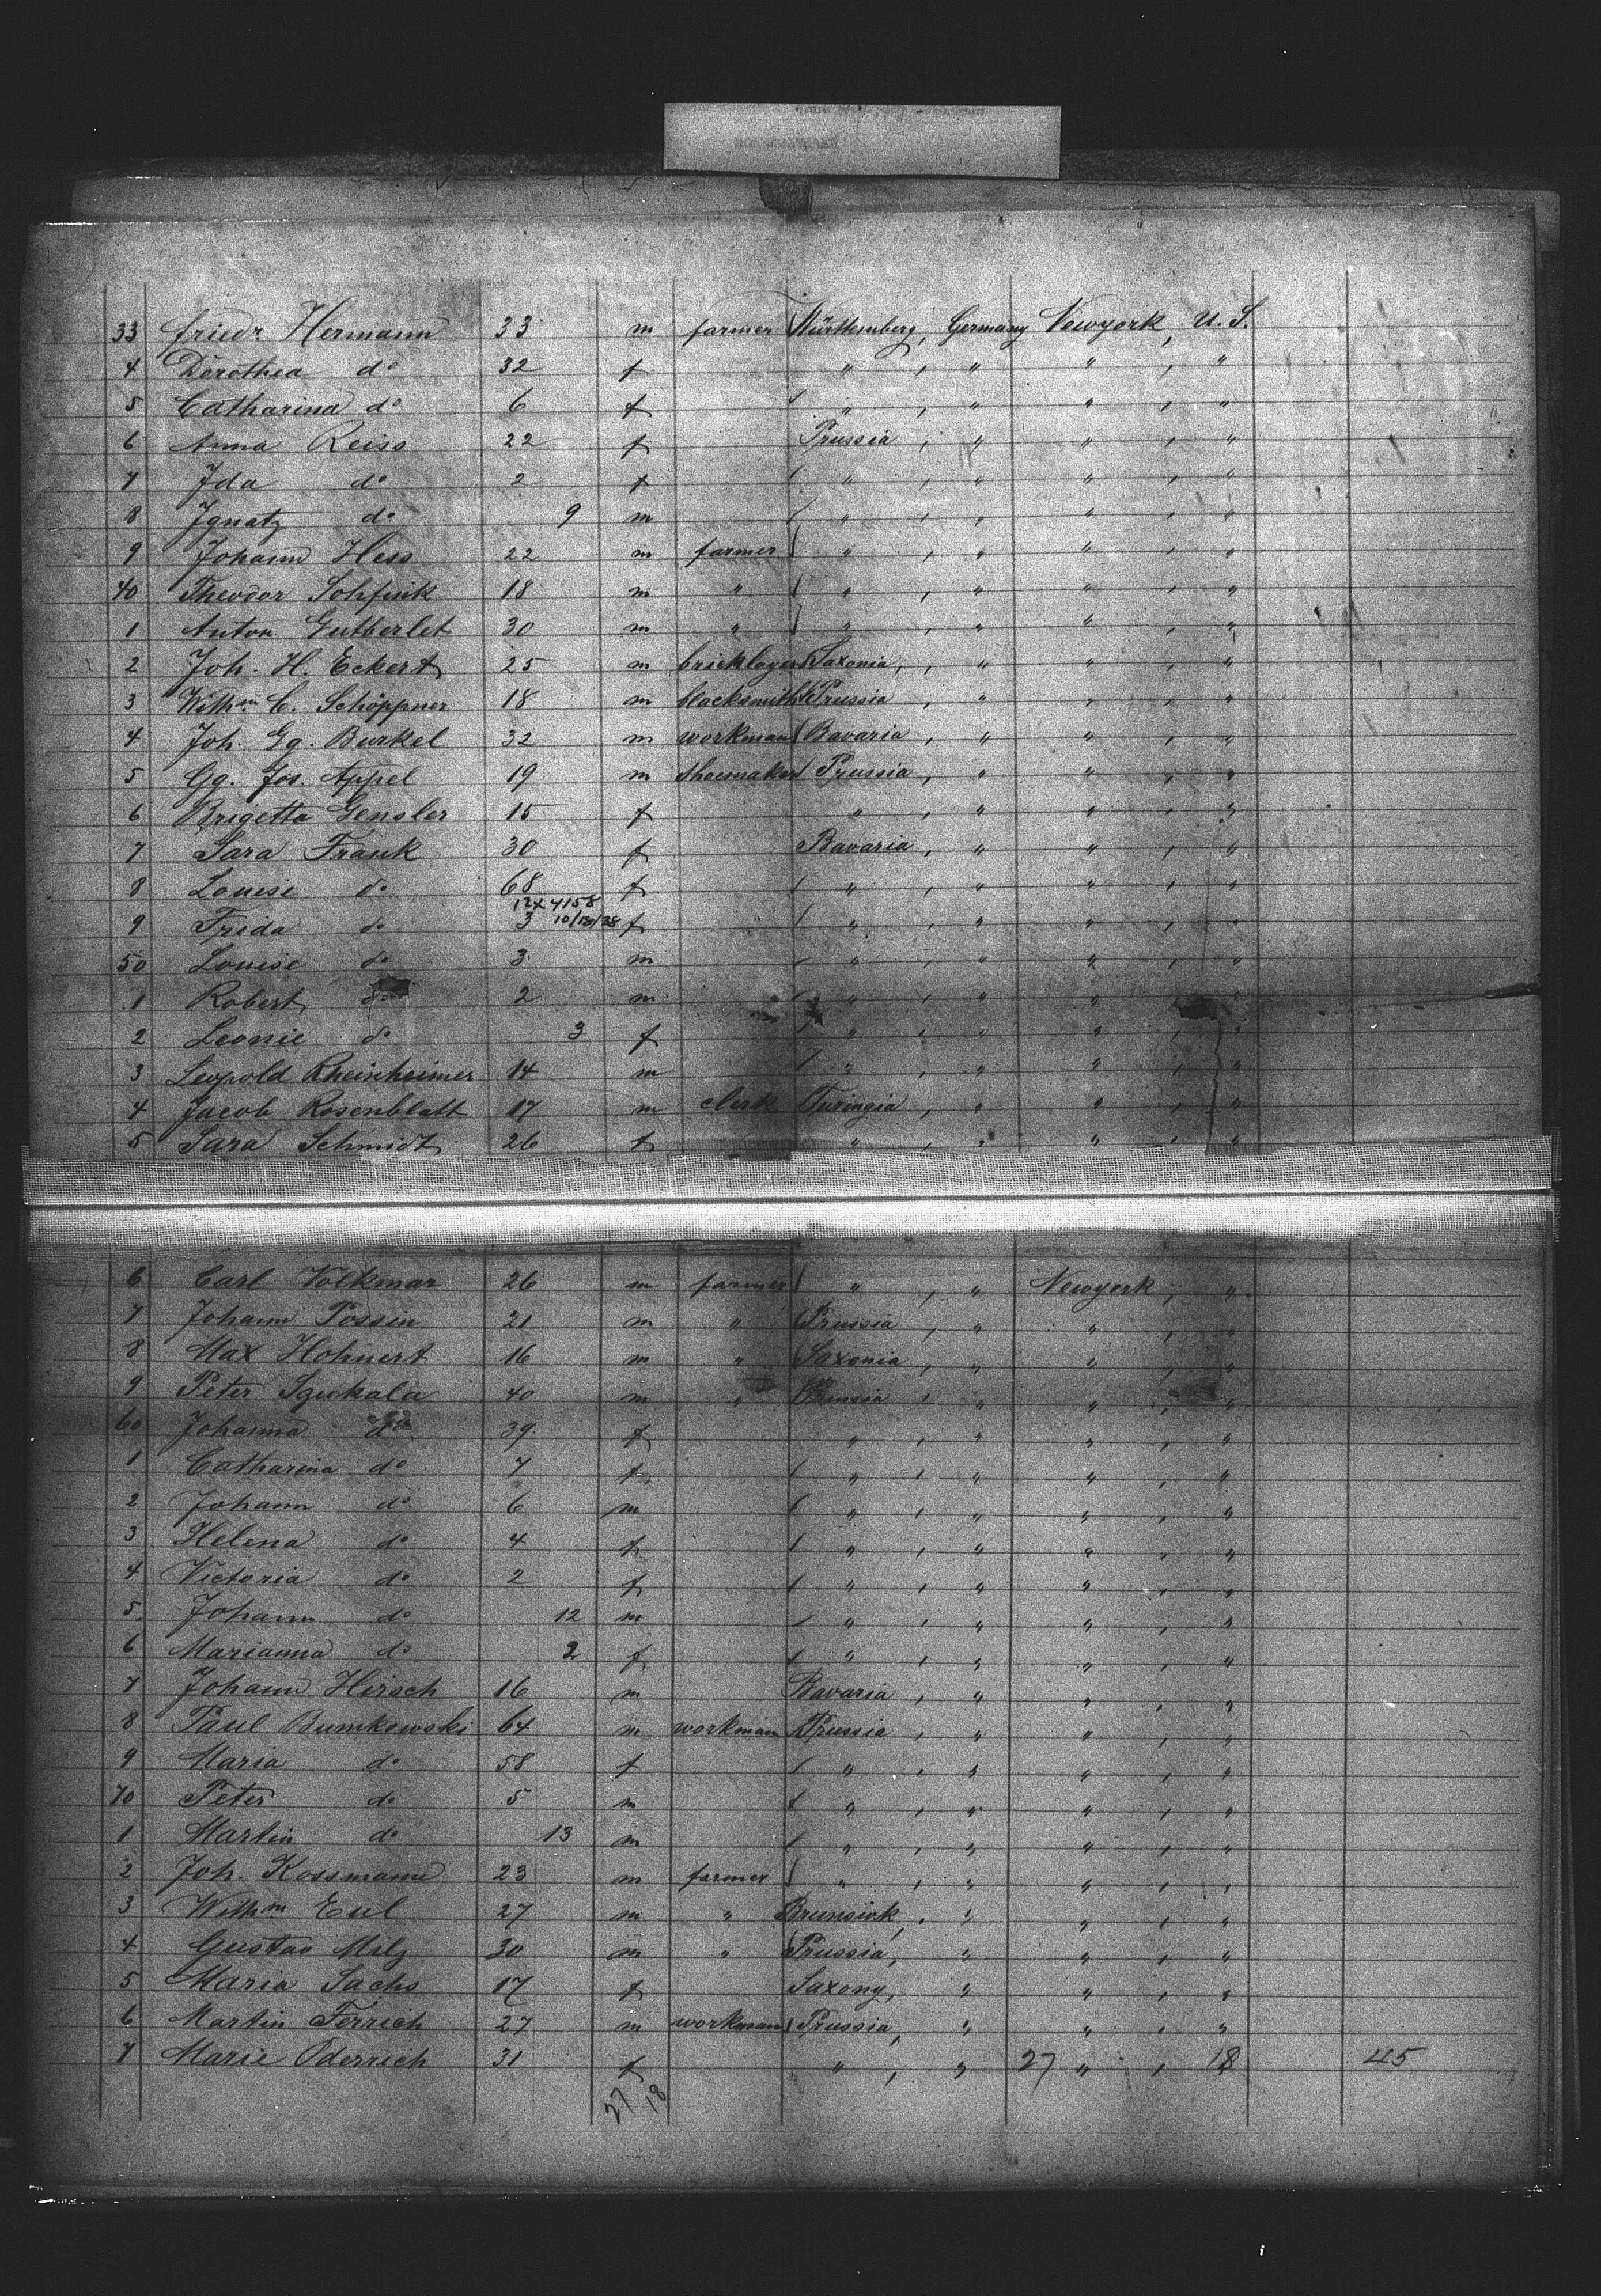 33 Friedr Hermann 33 m farmer Württemberg, Germany Newyork, U.S.
4 Dorothea do 32 f " , " " , "
5 Catharina do 6 f " , " " , "
6 Anna Reiss 22 f Prussia , " " , "
7 Ida do 2 f " , " " , "
8 Ignatz do 9 m " , " " , "
9 Johann Hess 22 m farmer " , " " , "
40 Theodor 18 m " " , " " , "
1 Anton Gutberlet 30 m " " , " " , "
2 Joh. H. Eckert 25 m bricklayer Saxonia, " " , "
3 Wilhm C. Schöppner 18 m blacksmith Prussia , " " , "
4 Joh. Gg. Burkel 32 m workman Bavaria , " " , "
5 Gg. Jos. Appel 19 m shoemaker Prussia , " " , "
6 Brigetta Gensler 15 f " , " " , "
7 Sara Frank 30 f Bavaria , " " , "
8 Louise do 68 f " , " " , "
12x4158
9 Frida do 3 10/18/28 f " , " " , "
50 Louise do 3 m " , " " , "
1 Robert do 2 m " , " " , "
2 Leonie do 3 f " , " " , "
3 Leopold Rheinheimer 14 m " , " " , "
4 Jacob Rosenblatt 17 m clerk Turingia , " " , "
5 Sara Schmidt 26 f " , " " , "
6 Carl Volkmar 26 m farmer " , " Newyork , "
7 Johann Possin 21 m " Prussia , " " , "
8 Max Hohnert 16 m " Saxonia , " " , "
9 Peter Szukala 40 m " Prussia , " " , "
60 Johanna do 39 f " , " " , "
1 Catharina do 7 f " , " " , "
2 Johann do 6 m " , " " , "
3 Helena do 4 f " , " " , "
4 Victoria do 2 f " , " " , "
5 Johann do 12 m " , " " , "
6 Marianna do 2 f " , " " , "
7 Johann Hirsch 16 m Bavaria , " " , "
8 Paul Bumkowski 64 m workman Prussia , " " , "
9 Maria do 58 f " , " " , "
70 Peter do 5 m " , " " , "
1 Martin do 13 m " , " " , "
2 Joh. Kossmann 23 m farmer " , " " , "
3 Wilhm Eul 27 m " Brunsink , " " , "
4 Gustav Milz 30 m " Prussia, " " , "
5 Maria Sachs 17 f Saxony, " " , "
6 Martin Ferrich 27 m workman Prussia, " " , "
7 Marie Oderrich 31 f " , " 27 " , 18 45
27 18